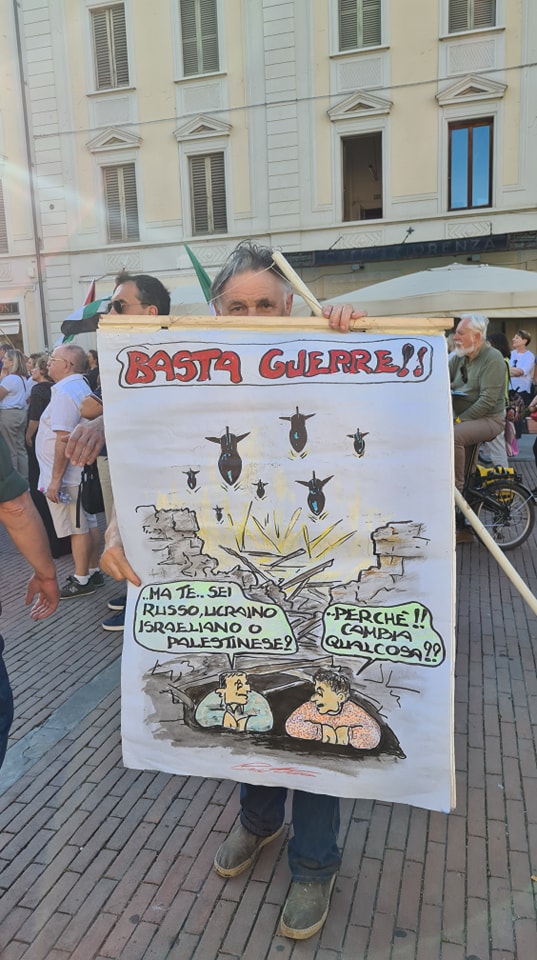 BASTA GUERRE!!
..MA TE.. SEI
RUSSO, UCRAINO
ISRAELIANO O
PALESTINESE?
..PERCHÉ!!
CAMBIA
QUALCOSA??